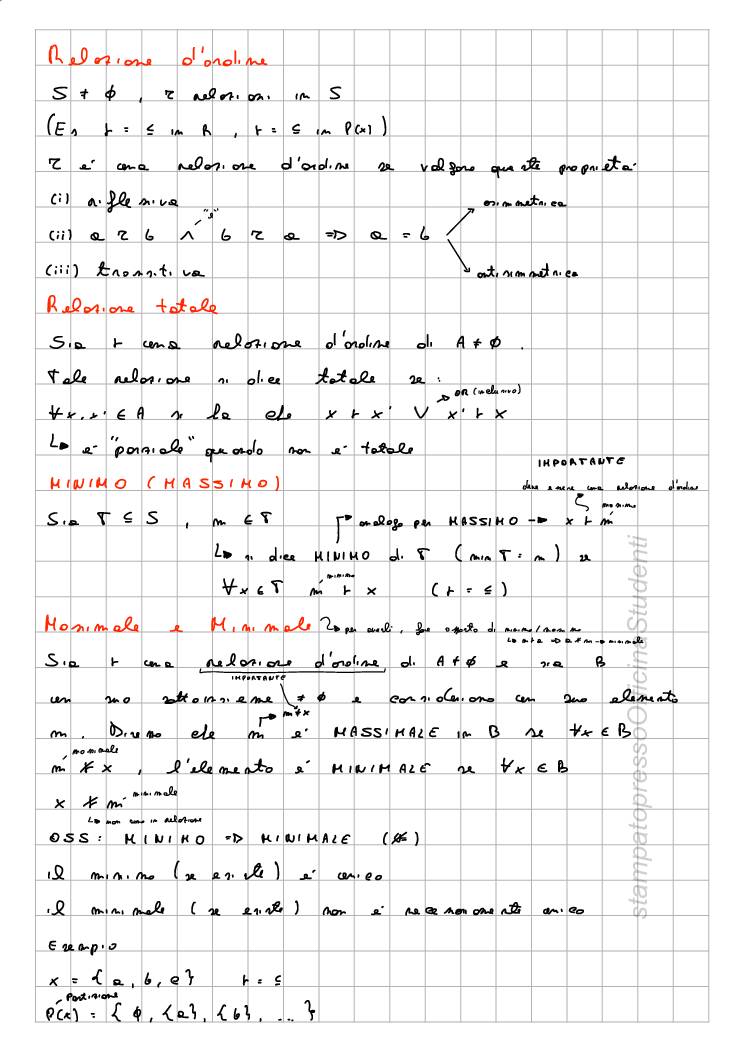 Relazione d'ordine
S ≠ ∅ , τ relazioni in S
(Es r = ≤ in R , r = ⊆ in P(x) )
τ e' una relazione d'ordine se valgono queste proprieta'
(i) riflessiva
(ii) a τ b ∧ "e" b τ a ⇒ a = b
asimmetrica
antisimmetrica
(iii) transitiva
Relazione totale
Sia r una relazione d'ordine di A ≠ ∅ .
Tale relazione si dice totale se :
∀x,x' ∈ A si ha che x r x' ∨ x' r x
OR (inclusivo)
↳ e' "parziale" quando non e' totale
MINIMO (MASSIMO)
IMPORTANTE
deve essere una relazione d'ordine
Sia T ⊆ S , m ∈ T
analogo per MASSIMO → x r m
massimo
↳ si dice MINIMO di T ( min T = m ) se
∀x ∈ T m r x ( r = ≤ )
minimo
Massimale e Minimale
Sia r una relazione d'ordine di A ≠ ∅ e sia B
IMPORTANTE
un suo sottoinsieme ≠ ∅ e consideriamo un suo elemento
m ≠ x
m . Diremo che m e' MASSIMALE in B se ∀x ∈ B
massimale
m r̸ x , l'elemento e' MINIMALE se ∀x ∈ B
x r̸ m minimale
↳ non sono in relazione
OSS: MINIMO ⇒ MINIMALE (⇍)
il minimo (se esiste) e' unico
il minimale (se esiste) non e' necessariamente unico
Esempio
x = { a , b , c } r = ⊆
Partizione
P(x) = { ∅ , {a} , {b} , ... }
stampatopressoOfficinaStudenti